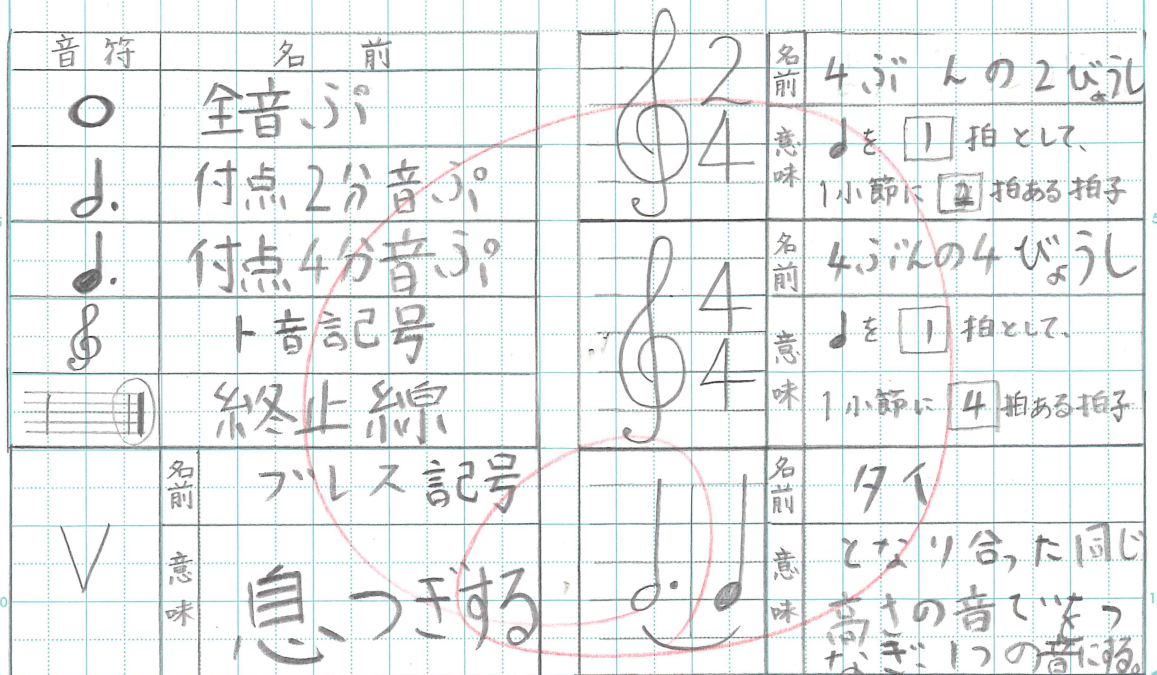 音符 名前
全音ぷ
付点2分音ぷ
付点4分音ぷ
ト音記号
終止線
名前 ブレス記号
意味 息つぎする
2
4
名前 4ぶんの2びょうし
意味 ♩を 1 拍として、
1小節に 2 拍ある拍子
4
4
名前 4ぶんの4びょうし
意味 ♩を 1 拍として、
1小節に 4 拍ある拍子
名前 タイ
意味 となり合った同じ
高さの音でをつ
なぎ、1つの音にする。